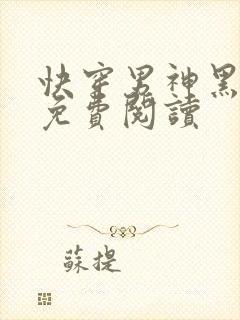 快穿男神黑
免費閱讀
蘇提